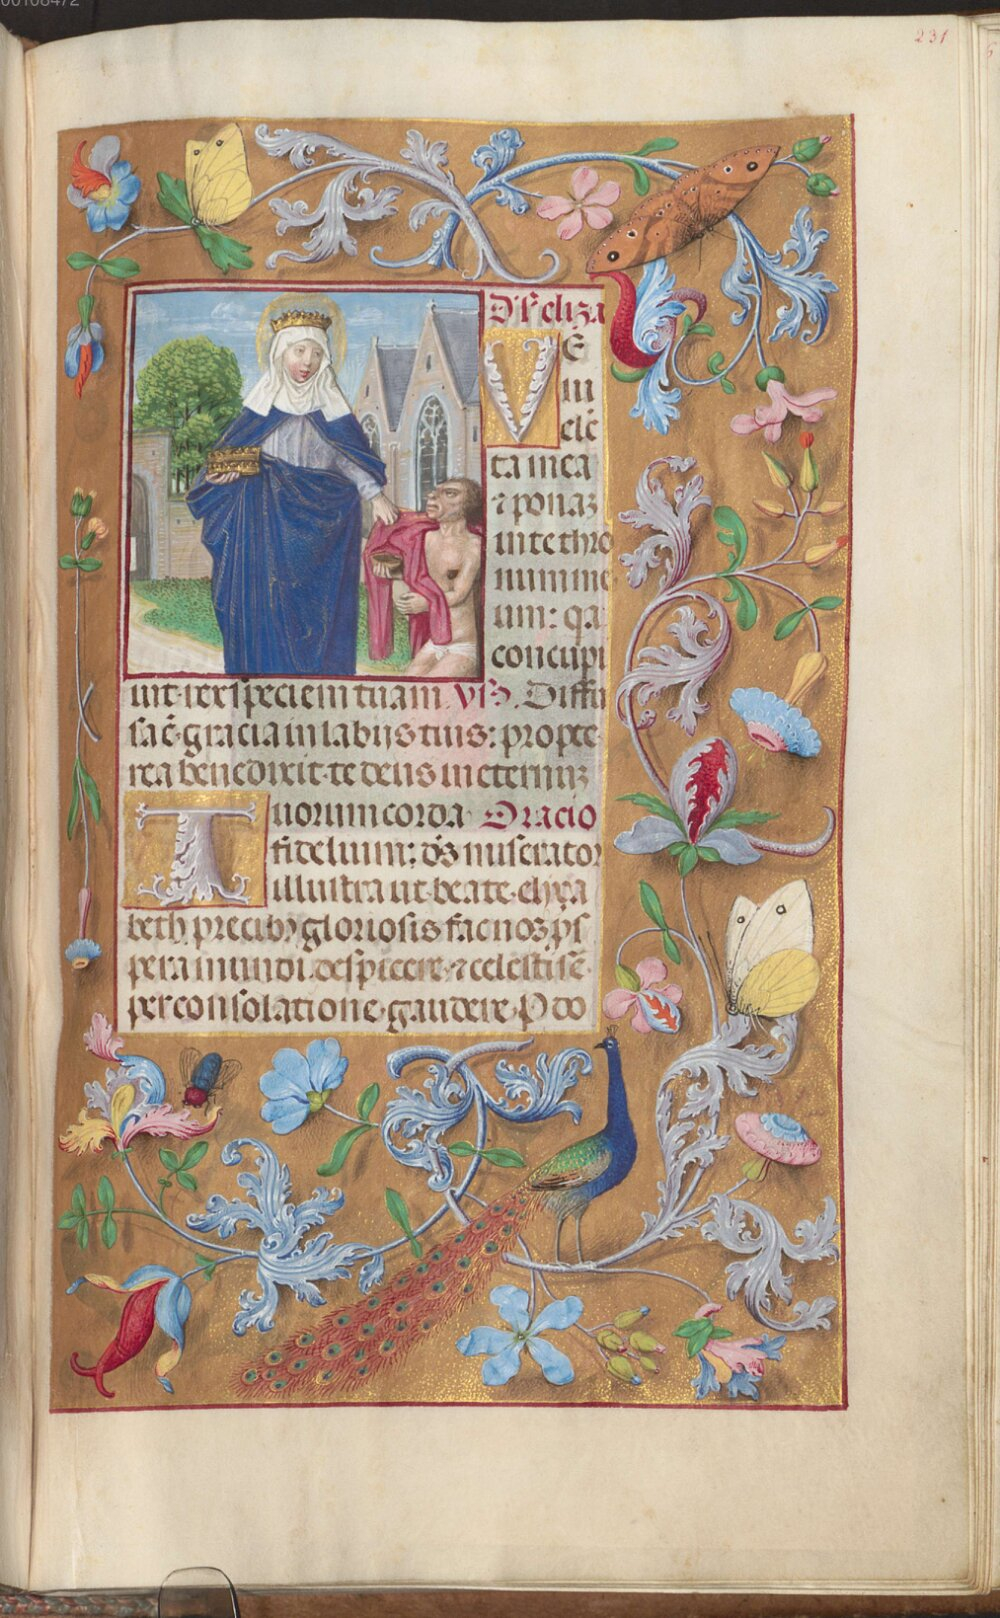 00108472
231
D' s' eliza
Ve
ni
elec
ta mea
⁊ ponaz
in te thro
num me
um: q̄a
concupi
uit rex speciem tuam Vs̄. Diffu
sa ē gracia in labijs tuis: propte
rea benedixit te deus in eternūz
Tuorum corda Oracio
fidelium: d̄s miserator
illustra ut beate elyza
beth precibꝫ gloriosis fac nos p̄s
pera mundi despicere ⁊ celesti sē
per consolatione gaudere P do